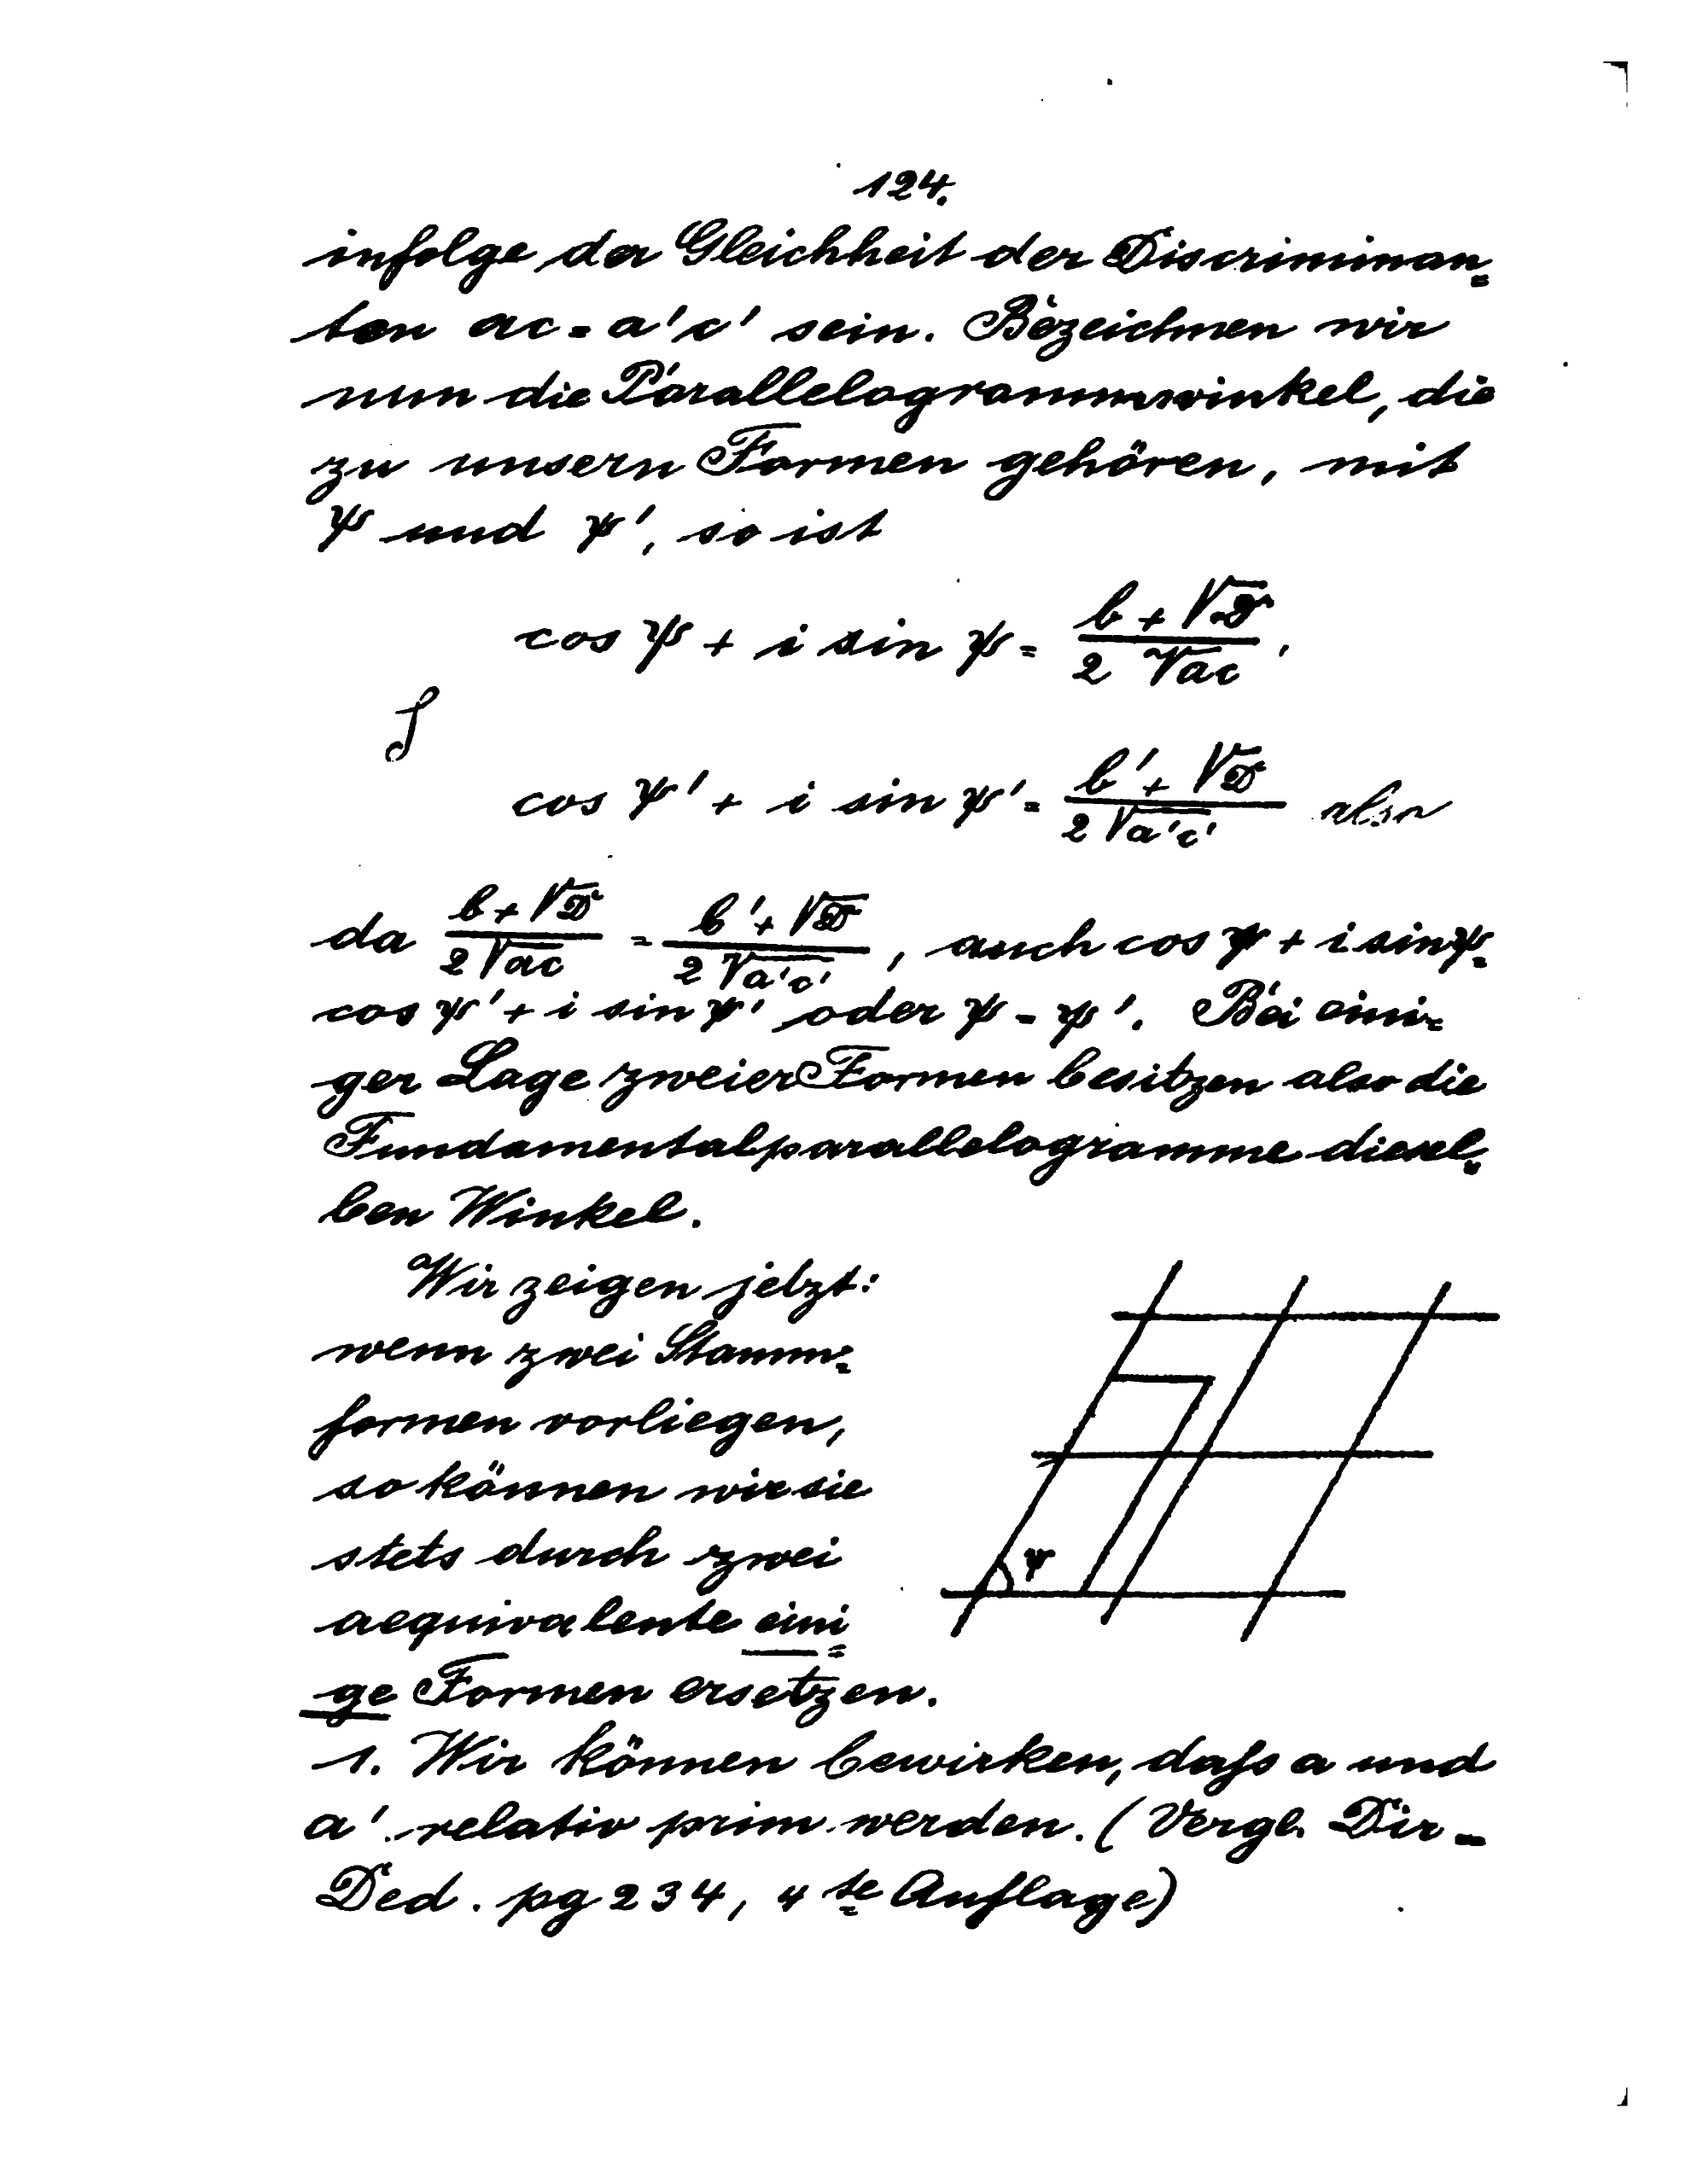 124.
infolge der Gleichheit der Discriminan=
ten ac = a'c' sein. Bezeichnen wir
nun die Parallelogrammwinkel, die
zu unsern Formen gehören, mit
ψ und ψ', so ist
cos ψ + i sin ψ = (b + √D) / (2 √ac),
cos ψ' + i sin ψ' = (b' + √D) / (2 √a'c') also
da (b + √D) / (2 √ac) = (b' + √D) / (2 √a'c'), auch cos ψ + i sin ψ =
cos ψ' + i sin ψ' oder ψ = ψ'. Bei eini=
ger Lage zweier Formen besitzen also die
Fundamentalparallelogramme diesel=
ben Winkel.
Wir zeigen jetzt:
wenn zwei Stamm=
formen vorliegen,
so können wir sie
stets durch zwei
aequivalente eini=
ge Formen ersetzen.
ψ
1. Wir können bewirken, dafs a und
a' relativ prim werden. (Vergl. Dir=
Ded. pg 234, 4te Auflage)